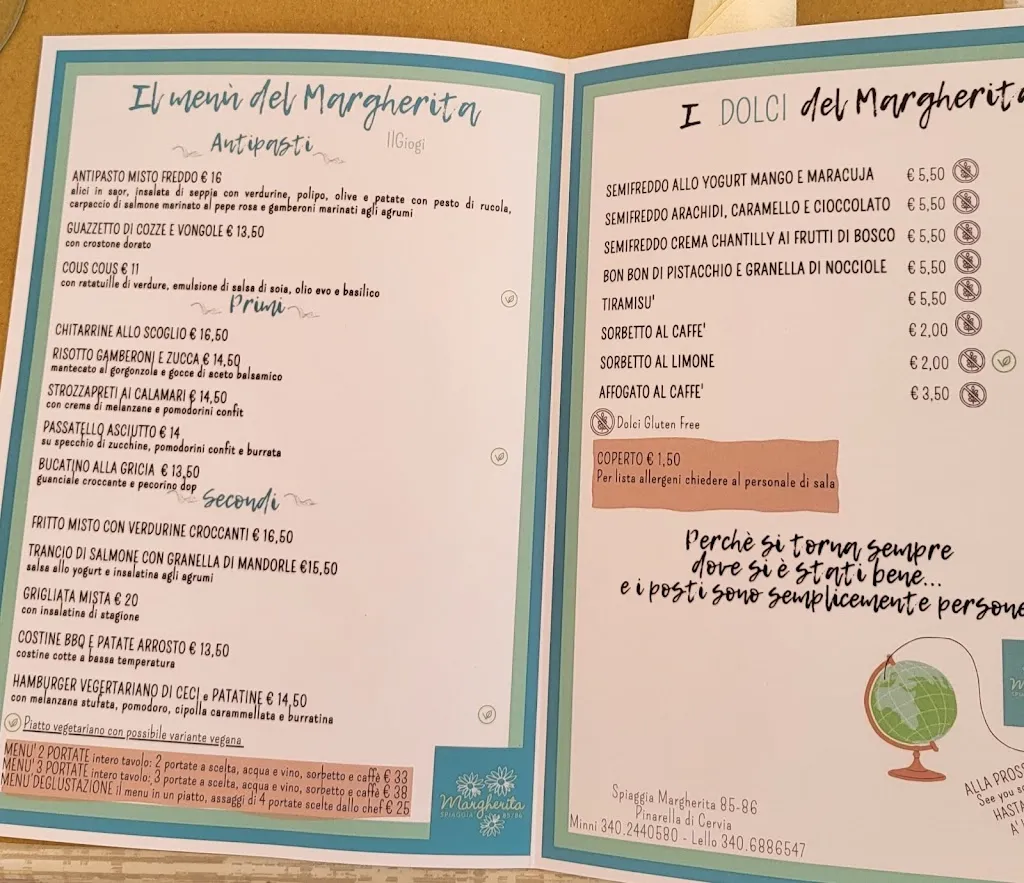 Il menù del Margherita
Antipasti
IlGiogi
ANTIPASTO MISTO FREDDO € 16
alici in saor, insalata di seppia con verdurine, polipo, olive e patate con pesto di rucola,
carpaccio di salmone marinato al pepe rosa e gamberoni marinati agli agrumi
GUAZZETTO DI COZZE E VONGOLE € 13,50
con crostone dorato
COUS COUS € 11
con ratatuille di verdure, emulsione di salsa di soia, olio evo e basilico
Primi
CHITARRINE ALLO SCOGLIO € 16,50
RISOTTO GAMBERONI E ZUCCA € 14,50
mantecato al gorgonzola e gocce di aceto balsamico
STROZZAPRETI AI CALAMARI € 14,50
con crema di melanzane e pomodorini confit
PASSATELLO ASCIUTTO € 14
su specchio di zucchine, pomodorini confit e burrata
BUCATINO ALLA GRICIA € 13,50
guanciale croccante e pecorino dop
Secondi
FRITTO MISTO CON VERDURINE CROCCANTI € 16,50
TRANCIO DI SALMONE CON GRANELLA DI MANDORLE €15,50
salsa allo yogurt e insalatina agli agrumi
GRIGLIATA MISTA € 20
con insalatina di stagione
COSTINE BBQ E PATATE ARROSTO € 13,50
costine cotte a bassa temperatura
HAMBURGER VEGERTARIANO DI CECI e PATATINE € 14,50
con melanzana stufata, pomodoro, cipolla carammellata e burratina
Piatto vegetariano con possibile variante vegana
MENU' 2 PORTATE intero tavolo: 2 portate a scelta, acqua e vino, sorbetto e caffè € 33
MENU' 3 PORTATE intero tavolo: 3 portate a scelta, acqua e vino, sorbetto e caffè € 38
MENU'DEGLUSTAZIONE il menu in un piatto, assaggi di 4 portate scelte dallo chef € 25
Margherita
SPIAGGIA 85/86
I DOLCI del Margherita
SEMIFREDDO ALLO YOGURT MANGO E MARACUJA € 5,50
SEMIFREDDO ARACHIDI, CARAMELLO E CIOCCOLATO € 5,50
SEMIFREDDO CREMA CHANTILLY AI FRUTTI DI BOSCO € 5,50
BON BON DI PISTACCHIO E GRANELLA DI NOCCIOLE € 5,50
TIRAMISU' € 5,50
SORBETTO AL CAFFE' € 2,00
SORBETTO AL LIMONE € 2,00
AFFOGATO AL CAFFE' € 3,50
Dolci Gluten Free
COPERTO € 1,50
Per lista allergeni chiedere al personale di sala
Perchè si torna sempre
dove si è stati bene...
e i posti sono semplicemente persone
ALLA PROSS
See you so
HASTA
A'
Spiaggia Margherita 85-86
Pinarella di Cervia
Minni 340.2440580 - Lello 340.6886547